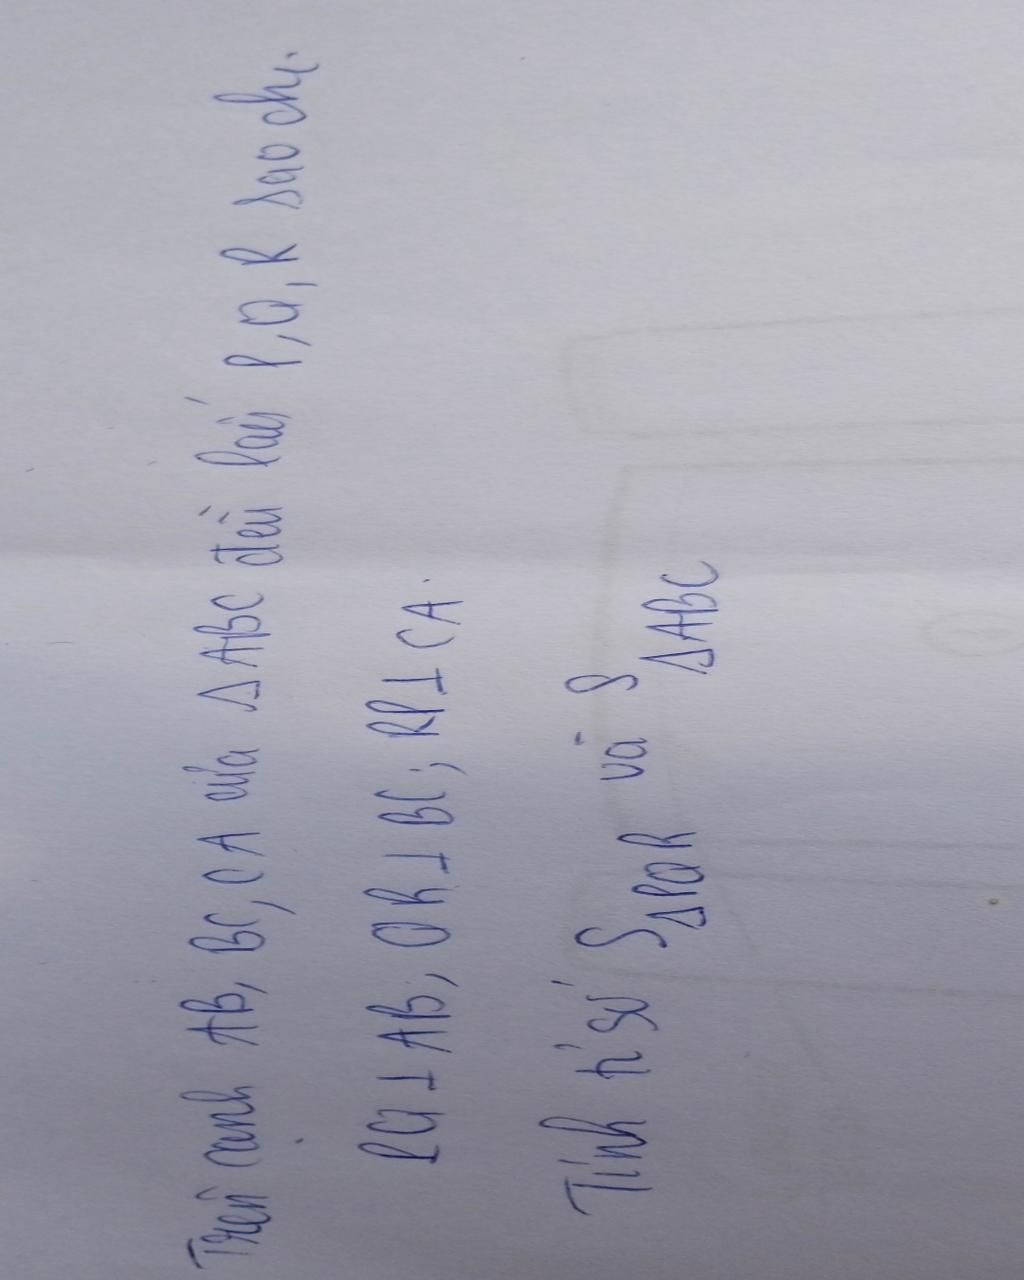 Trên cạnh AB, BC, CA của Δ ABC đều lấy P, Q, R sao cho.
PQ ⊥ AB, QR ⊥ BC; RP ⊥ CA.
Tính tỉ số S ΔPQR và S ΔABC